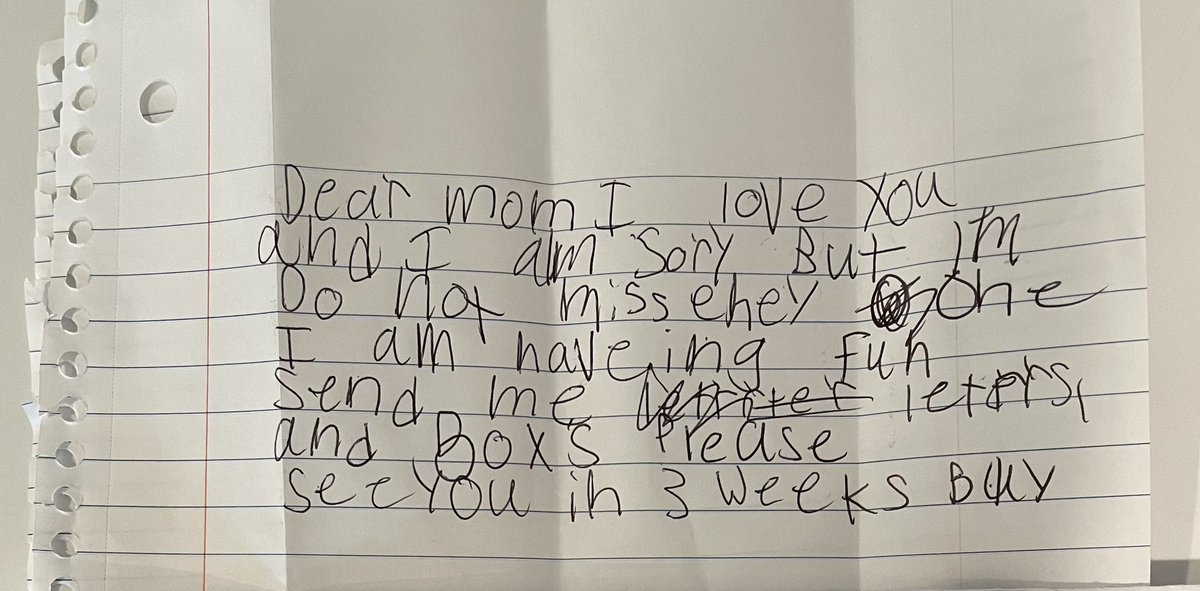 Dear mom I love you
and I am Sory But I'm
Do not miss eney one
I am haveing fun
Send me leters,
and Boxs Prease
see you in 3 weeks Buy